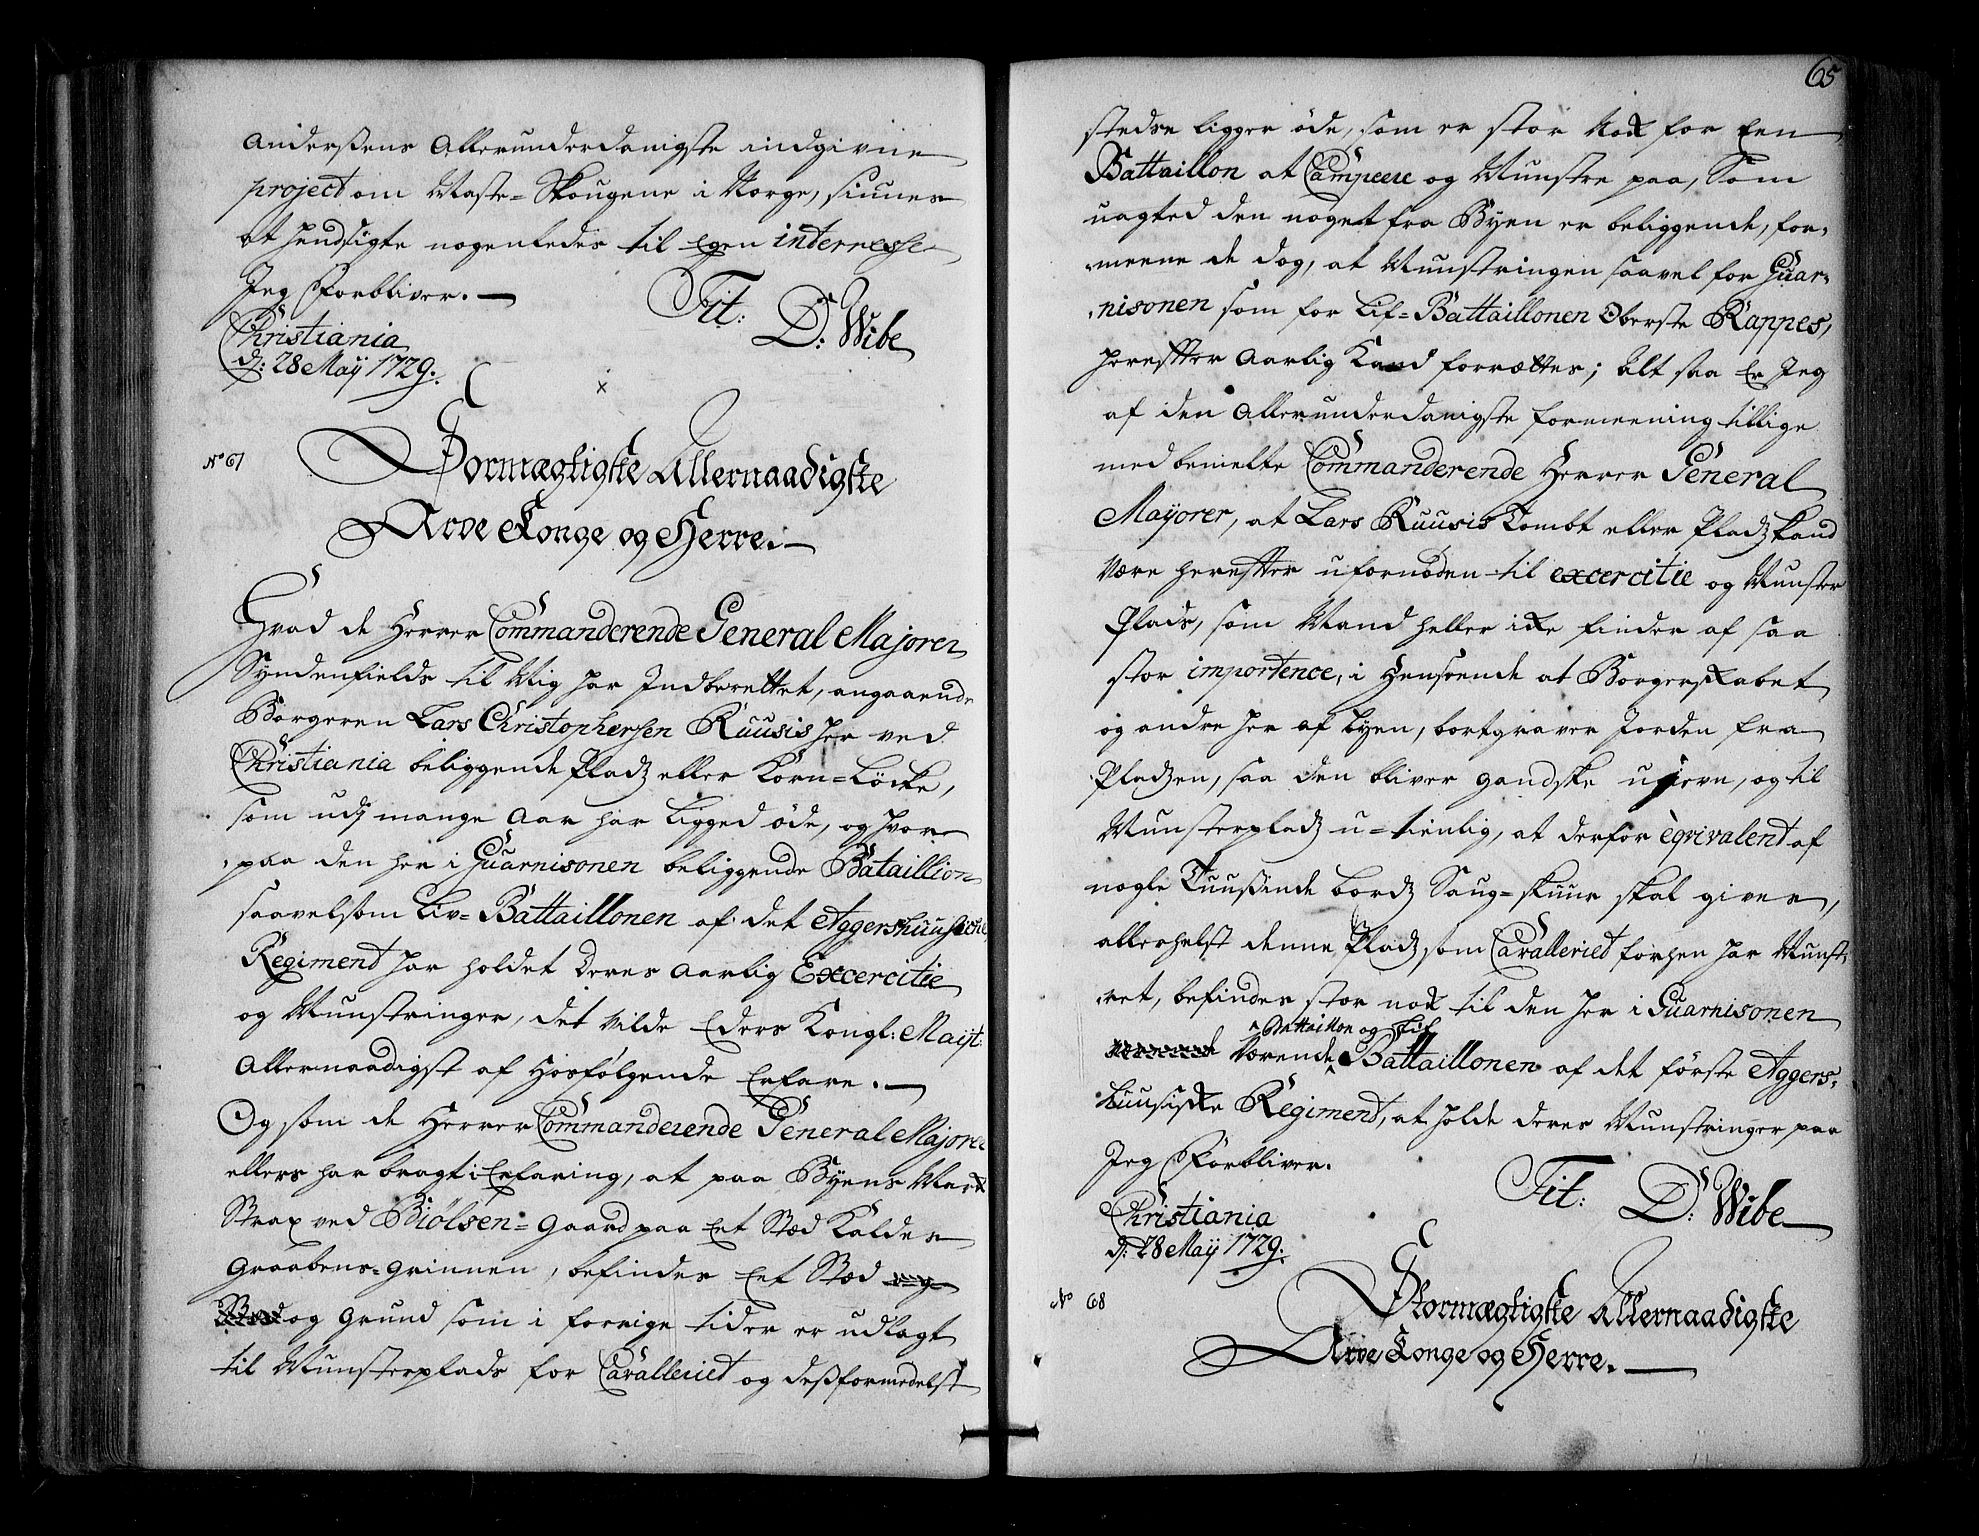 Anderssens Allerunderdanigste indgivne
project om Maste-Skougene i Norge, siunes
at hendsigte nogenledes til egen interresse
Jeg Forbliver. —
Tit: D: Wibe
Christiania
d: 28 Maij 1729.
No 67
Stormægtigste Allernaadigste
Arve Konge og Herre. —
Hvad de Herrer Commanderende General Majorer
Syndenfields til Mig har Indberettet, angaaende
Borgeren Lars Christophersen Ruusis her ved
Christiania beliggende Pladz eller Korn-Löcke,
som udj mange Aar har ligged øde, og hvor
paa den her i Guarnisonen beliggende Bataillion
saavelsom Liv-Battaillonen af det Aggershuusiche
Regiment har holdet deres Aarlig Excercitie
og Munstringer, det vilde Eders Kongl: Mayt:
Allernaadigst af Hosfølgende Erfare. —
Og som de Herrer Commanderende General Majorer
ellers har bragt i Erfaring, at paa Byens Mark
Strax ved Biölsen-Gaard paa Eet Stæd Kaldes
Graabens-Grinnen, befindes Eet Stæd
og Grund som i forrige tider er udlagt
til Munsterplads for Cavalleriet og dessformedelst
65
stedse ligger öde, som er stor Nok for Een
Battaillon at Campeere og Munstre paa, Som
uagted den noget fra Byen er beliggende, for-
meene de dog, at Munstringen saavel for Guar-
nisonen som for Lif-Battaillonen Oberste Kappes,
herefter Aarlig Kand forrættes; Alt saa Er Jeg
af den Allerunderdanigste formeening tillige
med bemelte Commanderende Herrer General
Mayorer, at Lars Ruusis Tombt eller Pladz kand
være herefter ufornöden til excercitie og Munster
Plads, som Mand heller ikke finder af saa
stor importence, i Henseende at Borgerskabet
og andre her af Byen, bortgraver Jorden fra
Pladzen, saa den bliver gandske ujevn, og til
Munsterpladz u-tienlig, at derfor eqvivalent af
nogle Tuusinde bordz Saug-skuur skal gives,
allerhelst denne Pladz som Cavalleriet forhen har Munst-
ret, befindes stor nok til den her i Guarnisonen
Battaillon og Lif
værende Battaillonen af det förste Aggers-
huusiske Regiment, at holde deres Munstringer paa
Jeg Forbliver.
Tit: D: Wibe
Christiania
d: 28 Maij 1729.
No 68
Stormægtigste Allernaadigste
Arve Konge og Herre. —